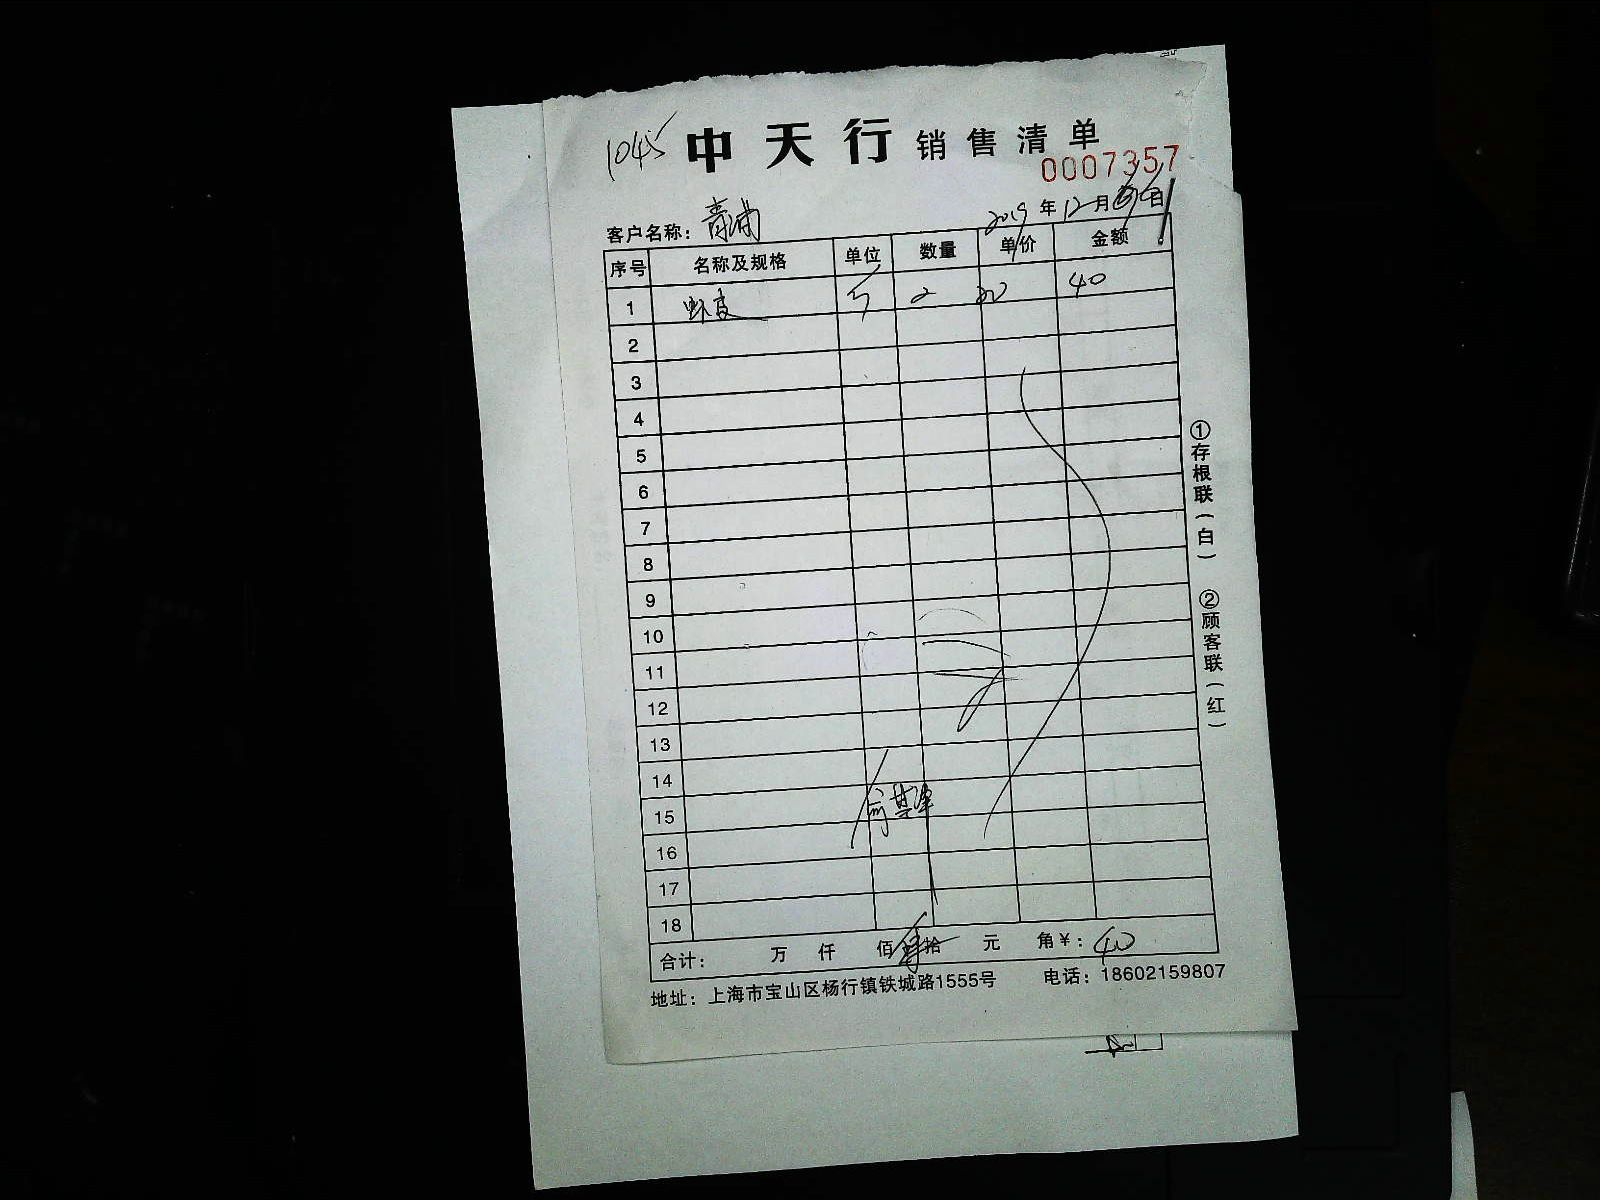 1045 中天行 销售清单
0007357
客户名称：青浦 2019年12月 日
序号 名称及规格 单位 数量 单价 金额
1 虾皮 斤 2 20 40
2
3
4
5
6
7
8
9
10
11
12
13
14
15
16
17
18
合计： 万 仟 佰 肆拾 元 角￥：40
地址：上海市宝山区杨行镇铁城路1555号 电话：18602159807
①存根联（白） ②顾客联（红）